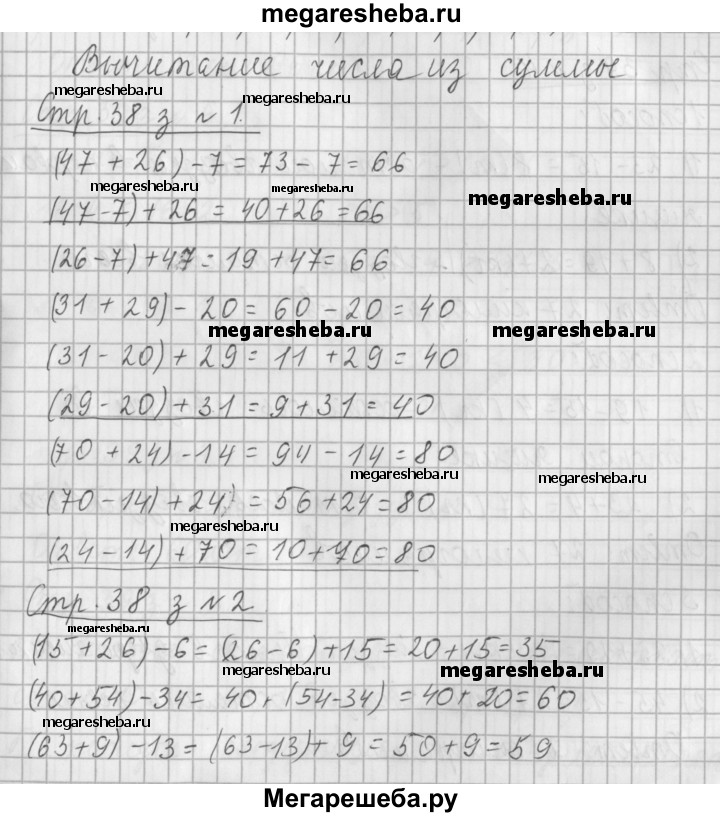 megaresheba.ru
Вычитание числа из суммы
megaresheba.ru
megaresheba.ru
Стр. 38 з № 1.
(47 + 26) - 7 = 73 - 7 = 66
megaresheba.ru
megaresheba.ru
megaresheba.ru
(47-7) + 26 = 40+26 = 66
(26-7) + 47 = 19 + 47 = 66
(31 + 29) - 20 = 60 - 20 = 40
megaresheba.ru
megaresheba.ru
(31 - 20) + 29 = 11 + 29 = 40
(29 - 20) + 31 = 9 + 31 = 40
(70 + 24) - 14 = 94 - 14 = 80
megaresheba.ru
megaresheba.ru
(70 - 14) + 24) = 56 + 24 = 80
megaresheba.ru
(24 - 14) + 70 = 10 + 70 = 80
Стр. 38 з № 2
megaresheba.ru
(15 + 26) - 6 = (26 - 6) + 15 = 20 + 15 = 35
megaresheba.ru
megaresheba.ru
(40 + 54) - 34 = 40 + (54 - 34) = 40 + 20 = 60
megaresheba.ru
(63 + 9) - 13 = (63 - 13) + 9 = 50 + 9 = 59
megaresheba.ru
Мегарешеба.ру